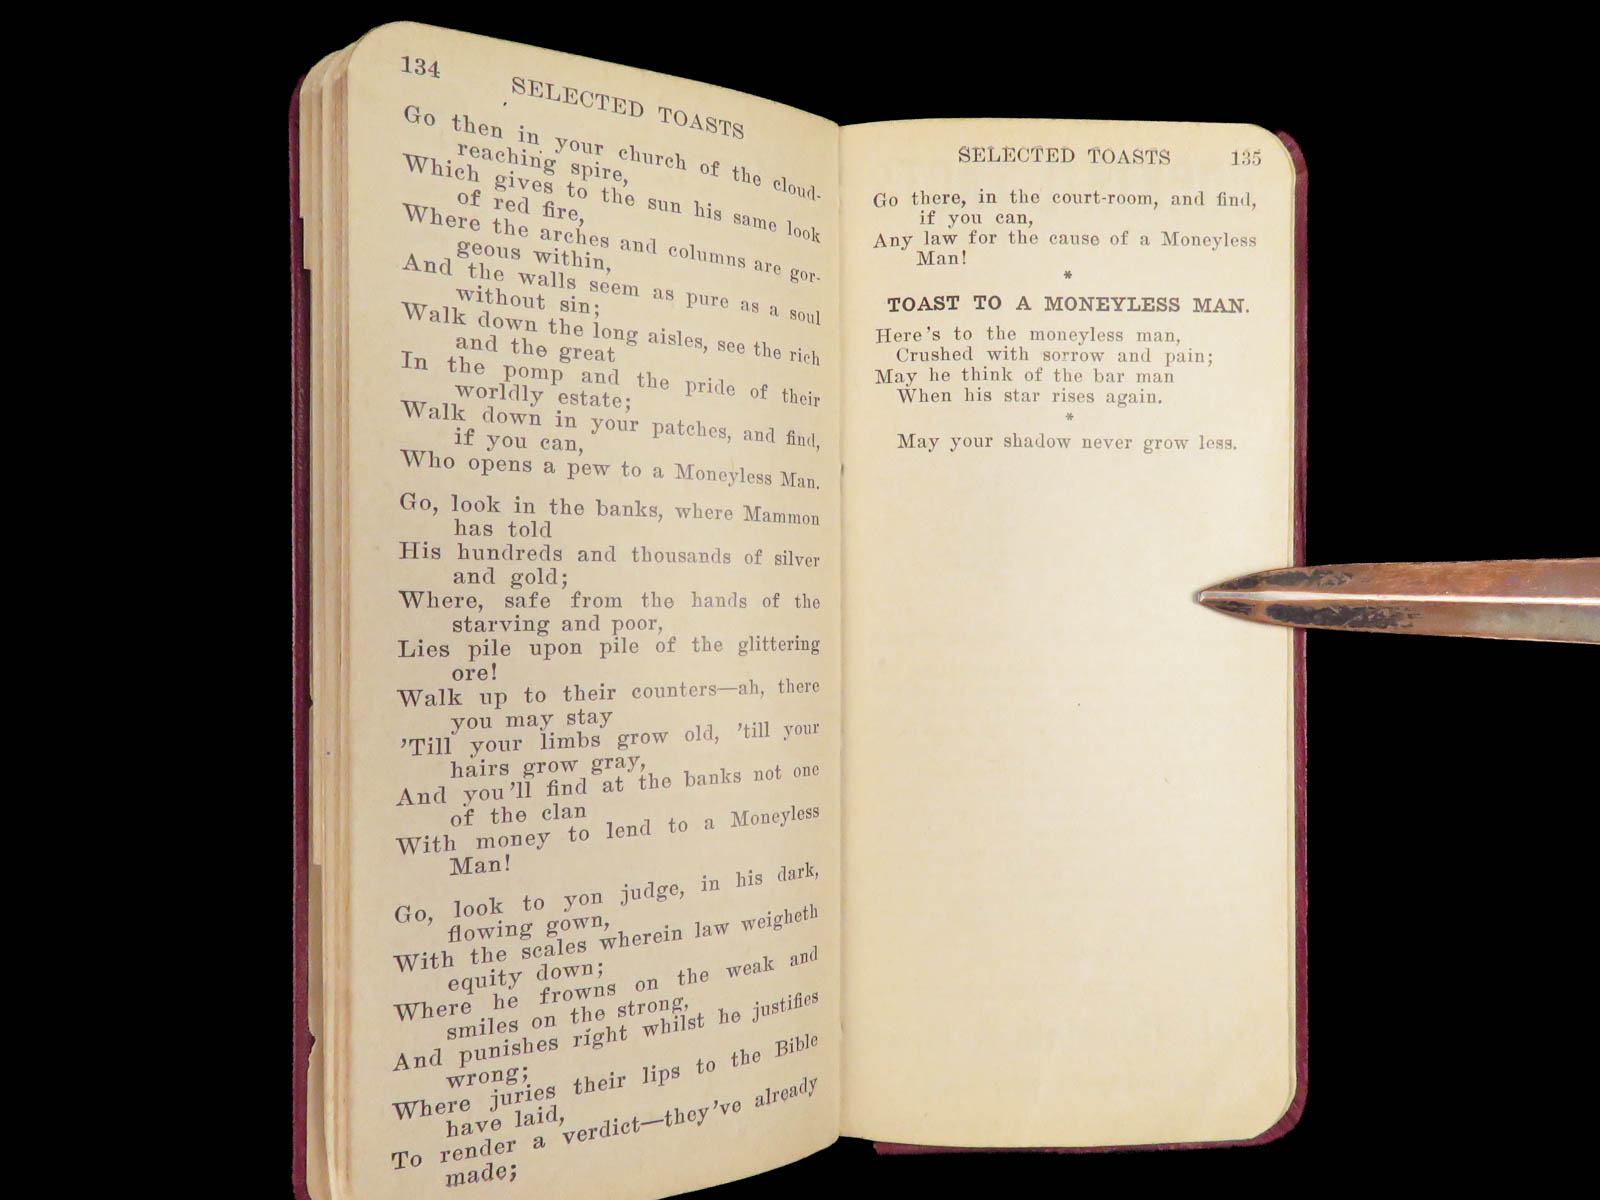 134
SELECTED TOASTS
Go then in your church of the cloud-
reaching spire,
Which gives to the sun his same look
of red fire,
Where the arches and columns are gor-
geous within,
And the walls seem as pure as a soul
without sin;
Walk down the long aisles, see the rich
and the great
In the pomp and the pride of their
worldly estate;
Walk down in your patches, and find,
if you can,
Who opens a pew to a Moneyless Man.
Go, look in the banks, where Mammon
has told
His hundreds and thousands of silver
and gold;
Where, safe from the hands of the
starving and poor,
Lies pile upon pile of the glittering
ore!
Walk up to their counters—ah, there
you may stay
'Till your limbs grow old, 'till your
hairs grow gray,
And you'll find at the banks not one
of the clan
With money to lend to a Moneyless
Man!
Go, look to yon judge, in his dark,
flowing gown,
With the scales wherein law weigheth
equity down;
Where he frowns on the weak and
smiles on the strong,
And punishes right whilst he justifies
wrong;
Where juries their lips to the Bible
have laid,
To render a verdict—they've already
made;
SELECTED TOASTS 135
Go there, in the court-room, and find,
if you can,
Any law for the cause of a Moneyless
Man!
*
TOAST TO A MONEYLESS MAN.
Here's to the moneyless man,
Crushed with sorrow and pain;
May he think of the bar man
When his star rises again.
*
May your shadow never grow less.